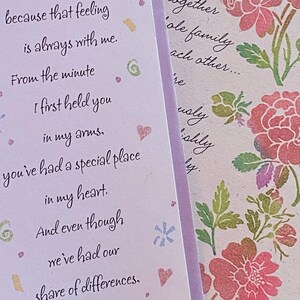 because that feeling
is always with me.
From the minute
I first held you
in my arms.
you've had a special place
in my heart.
And even though
we've had our
share of differences.
together
whole family
each other...